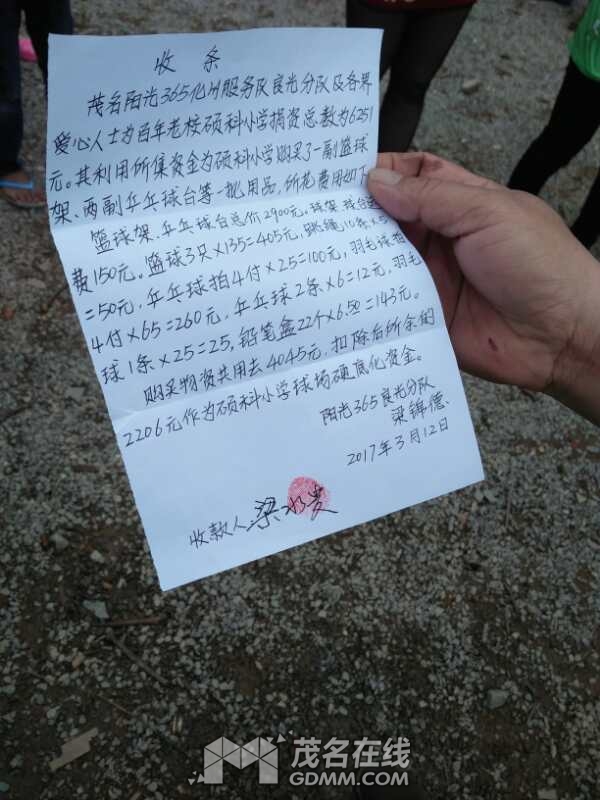 收条
茂名阳光365化州服务队良光分队及各界
爱心人士为百年老校硕科小学捐资总数为6251
元。其利用所集资金为硕科小学购买了一副篮球
架、两副乒乓球台等一批用品,所花费用如下
篮球架、乒乓球台总价2900元,球架、球台
费150元,篮球3只×135=405元,跳绳10条×5
=50元,乒乓球拍4付×25=100元,羽毛球拍
4付×65=260元,乒乓球2条×6=12元,羽毛
球1条×25=25,铅笔盒22个×6.50=143元。
购买物资共用去4045元,扣除后所余的
2206元作为硕科小学球场硬底化资金。
阳光365良光分队
梁锦德、
2017年3月12日
收款人梁水贵
茂名在线
GDMM.COM